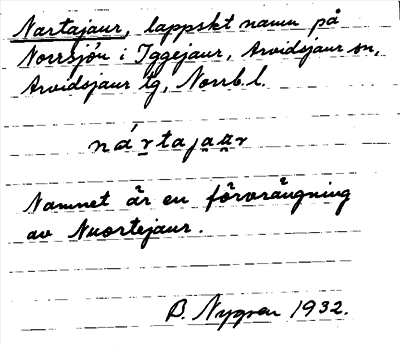 Nartajaur, lappskt namn på
Norrsjön i Iggejaur, Arvidsjaur sn,
Arvidsjaur tg, Norrb. l.
nártajaur
Namnet är en förvrängning
av Nuortejaur.
B. Nygren 1932.